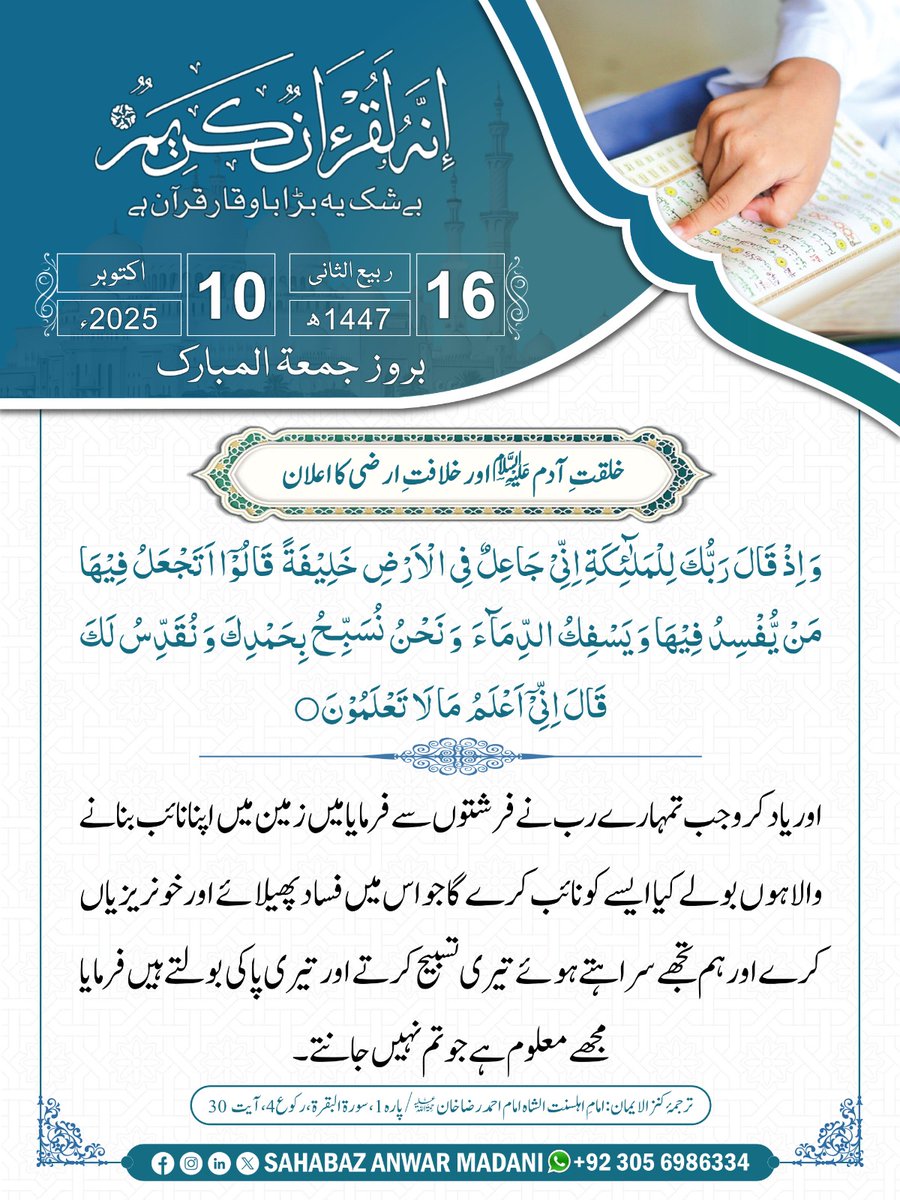 اِنَّهٗ لَقُرْاٰنٌ كَرِیْمٌ
بے شک یہ بڑا باوقار قرآن ہے
16 ربیع الثانی 1447ھ 10 اکتوبر 2025ء
بروز جمعۃ المبارک
خلقتِ آدم علیہ السلام اور خلافتِ ارضی کا اعلان
وَ اِذْ قَالَ رَبُّكَ لِلْمَلٰٓىٕكَةِ اِنِّیْ جَاعِلٌ فِی الْاَرْضِ خَلِیْفَةً قَالُوْۤا اَتَجْعَلُ فِیْهَا
مَنْ یُّفْسِدُ فِیْهَا وَ یَسْفِكُ الدِّمَآءَ وَ نَحْنُ نُسَبِّحُ بِحَمْدِكَ وَ نُقَدِّسُ لَكَ
قَالَ اِنِّیْۤ اَعْلَمُ مَا لَا تَعْلَمُوْنَ○
اور یاد کرو جب تمہارے رب نے فرشتوں سے فرمایا میں زمین میں اپنا نائب بنانے
والا ہوں بولے کیا ایسے کو نائب کرے گا جو اس میں فساد پھیلائے اور خونریزیاں
کرے اور ہم تجھے سراہتے ہوئے تیری تسبیح کرتے اور تیری پاکی بولتے ہیں فرمایا
مجھے معلوم ہے جو تم نہیں جانتے۔
ترجمۂ کنز الایمان: امامِ اہلسنت الشاہ امام احمد رضا خان / پارہ 1، سورۃ البقرۃ، رکوع 4، آیت 30
SAHABAZ ANWAR MADANI +92 305 6986334